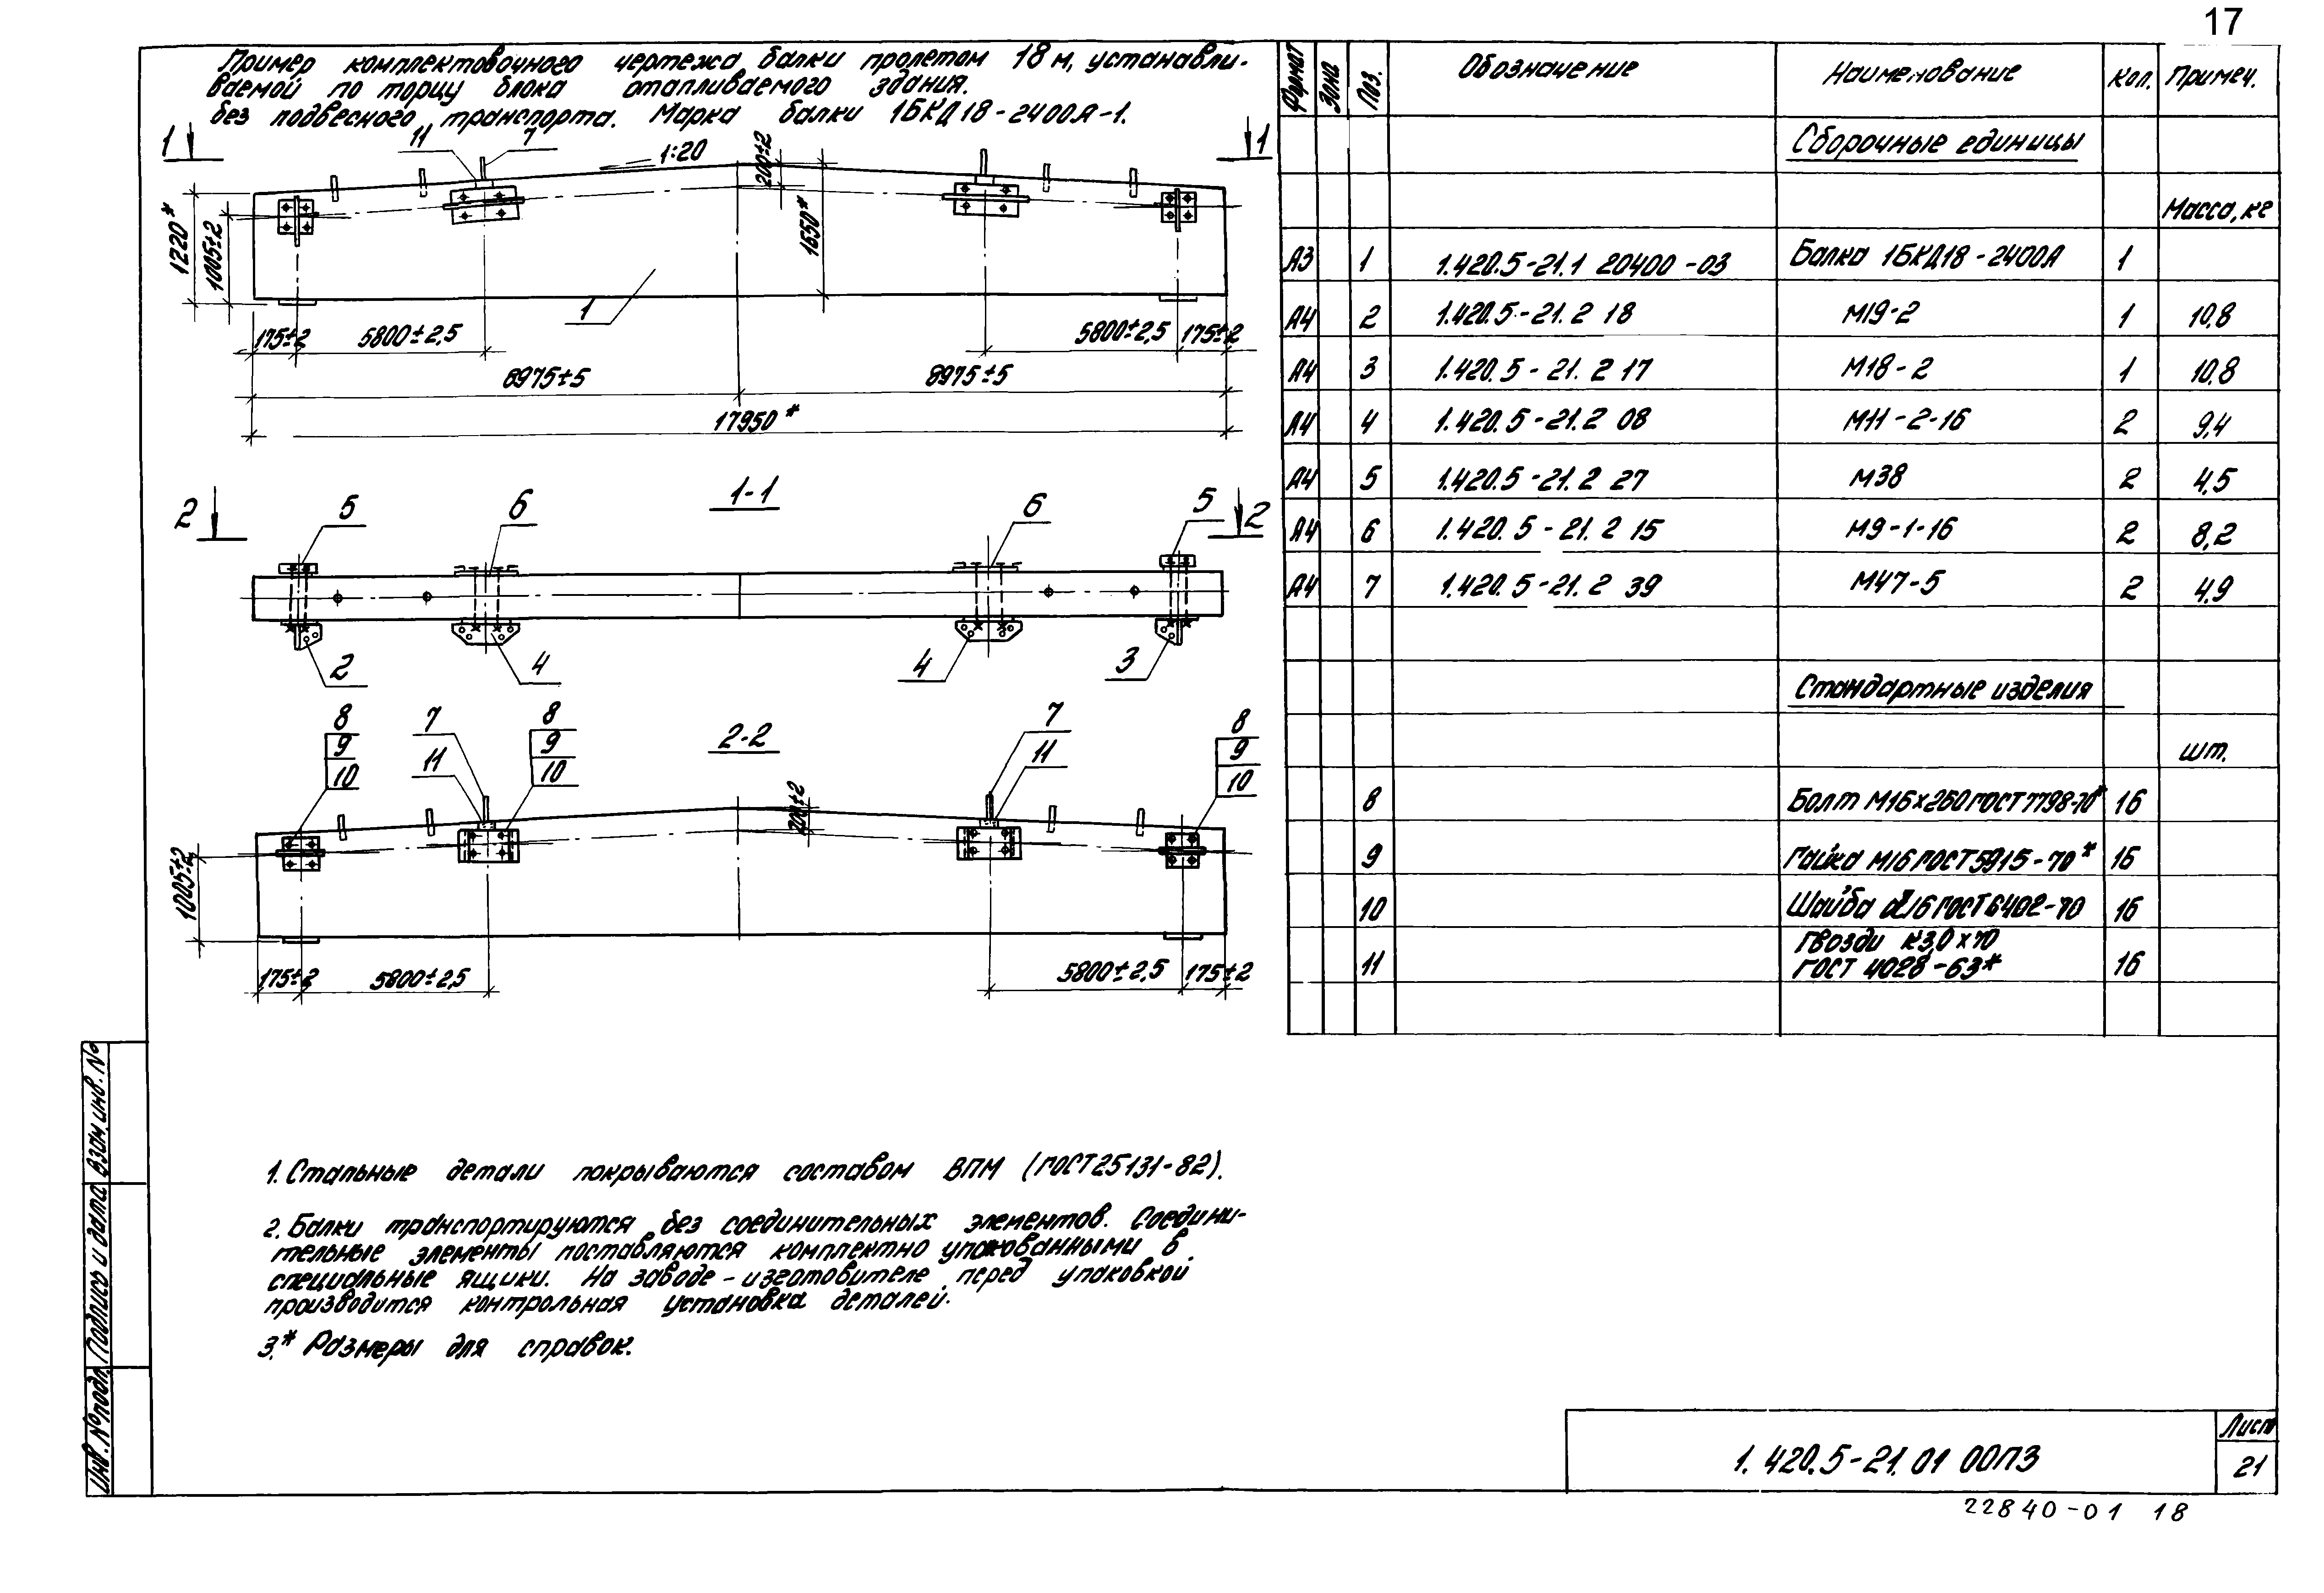 17
Пример комплектовочного чертежа балки пролетом 18 м, устанавли-
ваемой по торцу блока отапливаемого здания.
без подвесного транспорта. Марка балки 1БКД18-2400А-1.
1 11 7 1:20 200±2 1
1220* 1005±2 1650*
1
175±2 5800±2,5 5800±2,5 175±2
8975±5 8975±5
17950*
1-1
2 5 6 6 5 2
2 4 4 3
2-2
8 7 8 7 8
9 11 9 11 9
10 10 10
200±2
1005±2
175±2 5800±2,5 5800±2,5 175±2
Формат Зона Поз. Обозначение Наименование Кол. Примеч.
Сборочные единицы
Масса, кг
А3 1 1.420.5-21.1 20400-03 Балка 1БКД18-2400А 1
А4 2 1.420.5-21.2 18 М19-2 1 10,8
А4 3 1.420.5-21.2 17 М18-2 1 10,8
А4 4 1.420.5-21.2 08 М11-2-16 2 9,4
А4 5 1.420.5-21.2 27 М38 2 4,5
А4 6 1.420.5-21.2 15 М9-1-16 2 8,2
А4 7 1.420.5-21.2 39 М47-5 2 4,9
Стандартные изделия
шт.
8 Болт М16х260 ГОСТ 7798-70* 16
9 Гайка М16 ГОСТ 5915-70* 16
10 Шайба 16 ГОСТ 6402-70 16
Гвозди К3,0х70
11 ГОСТ 4028-63* 16
1. Стальные детали покрываются составом ВПМ (ГОСТ 25131-82).
2. Балки транспортируются без соединительных элементов. Соедини-
тельные элементы поставляются комплектно упакованными в
специальные ящики. На заводе-изготовителе перед упаковкой
производится контрольная установка деталей.
3.* Размеры для справок.
Инв. № подл. Подпись и дата Взам. инв. №
1.420.5-21.01 00ПЗ
Лист
21
22840-01 18